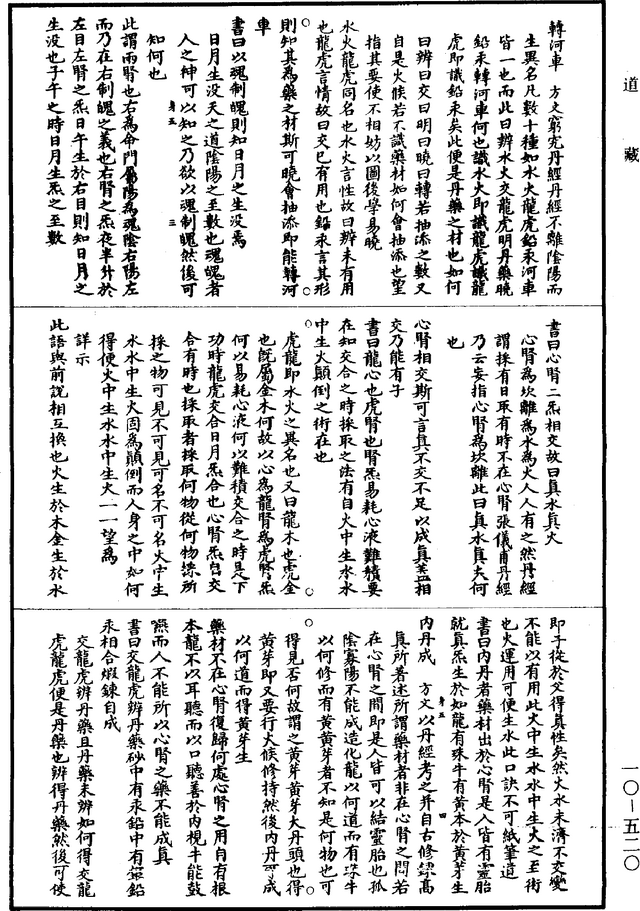 道藏
轉河車　方文窮究丹經丹經不離陰陽而
生異名凡數十種如水火龍虎鉛汞河車
皆一也而此曰辨水火交龍虎明丹藥曉
鉛汞轉河車何也識水火即識龍虎識龍
虎即識鉛汞矣此便是丹藥之材也如何
曰辨曰交曰明曰曉曰轉若抽添之數又
自是火候若不識藥材如何會抽添也望
指其要使不相妨以圖後學易曉
水火龍虎同名也水火言性故曰辨未有用
也龍虎言情故曰交已有用也鉛汞言其形
則知其為藥之材斯可曉會抽添即能轉河
車
書曰以魂制魄則知日月之生没焉
日月生没天之道陰陽之至數也魂魄者
人之神可以知之乃欲以魂制魄然後可
知何也
此謂兩腎也右為命門屬陽為魂陰右陽左
而乃在右制魄之義也右腎之炁夜半升於
左目左腎之炁日午生於右目則知日月之
生没也子午之時日月生炁之至數
書曰心腎二炁相交故曰真水真火
心腎為坎離為水為火人人有之然丹經
謂採有日取有時不在心腎張儀甫丹經
乃云妄指心腎為坎離此曰真水真火何
也
心腎相交斯可言真不交不足以成真蓋相
交乃能有子
書曰龍心也虎腎也腎炁易耗心液難積要
在知交合之時採取之法有自火中生水水
中生火顛倒之術在也
虎龍即水火之異名也又曰龍木也虎金
也既屬金木何故以心為龍腎為虎腎炁
何以易耗心液何以難積交合之時是下
功時龍虎交合日月炁合也心腎炁自交
合有時也採取者採取何物從何物採所
採之物可見不可見可名不可名火中生
水水中生火固為顛倒而人身之中如何
得便火中生水水中生火一一望為
詳示
此語與前説相互換也火生於木金生於水
即子從於父得真性矣然火水未濟不交變
不能以有用此火中生水水中生火之至術
也火運用可便生水此口訣不可紙筆道
書曰内丹者藥材出於心腎是人皆有靈胎
就真炁生於如龍有珠牛有黄本於黄芽生
内丹成　方文以丹經考之并自古修鍊高
真所著述所謂藥材者非在心腎之間若
在心腎之間即是人皆可以結靈胎也孤
陰寡陽不能成造化龍以何道而有珠牛
以何修而有黄黄芽者不知是何物也可
得見否何故謂之黄芽黄芽大丹頭也得
黄芽即又要行火候修持然後内丹可成
以何道而得黄芽生
藥材不在心腎復歸何處心腎之用自有根
本龍不以耳聽而以口聽善於内視牛能鼓
嚥而人不能所以心腎之藥不能成真
書曰交龍虎辨丹藥砂中有汞鉛中有銀鉛
汞相合煅鍊自成
交龍虎辨丹藥且丹藥未辨如何得交龍
虎龍虎便是丹藥也辨得丹藥然後可使
一〇—五二〇